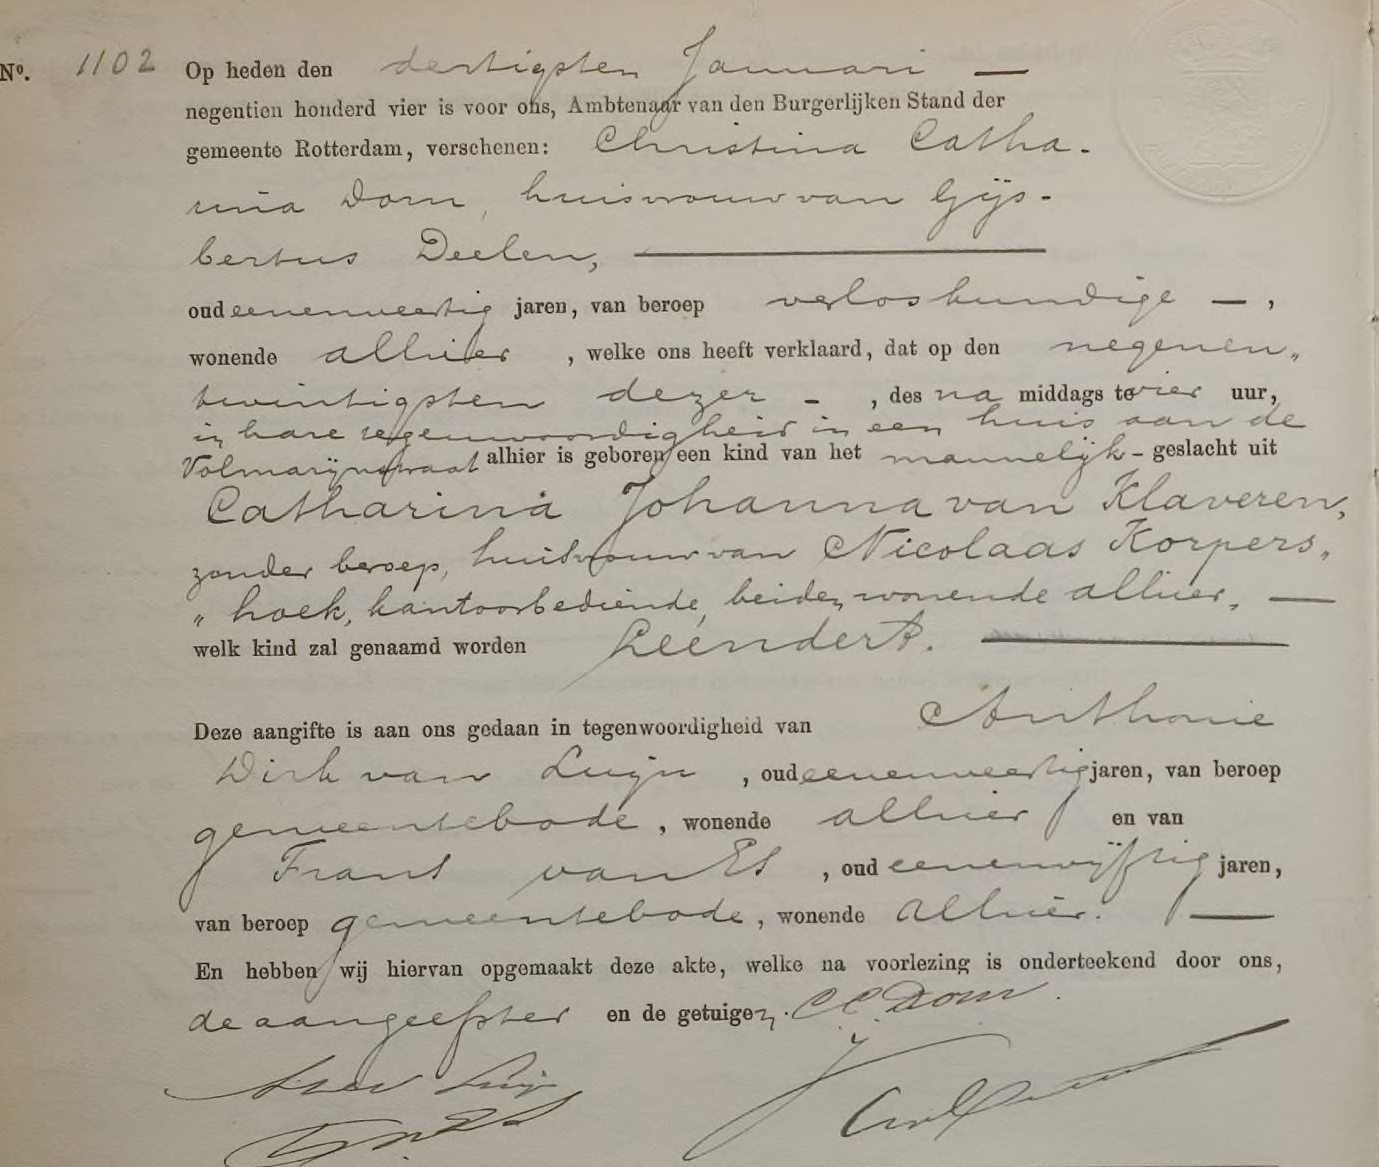 No. 1102 Op heden den dertigsten Januari —
negentien honderd vier is voor ons, Ambtenaar van den Burgerlijken Stand der
gemeente Rotterdam, verschenen: Christina Catha-
rina Dom, huisvrouw van Gijs-
bertus Deelen, —
oud eenenveertig jaren, van beroep verloskundige —,
wonende alhier, welke ons heeft verklaard, dat op den negenen„
twintigsten dezer —, des na middags te vier uur,
in hare tegenwoordigheid in een huis aan de
Volmarijnstraat alhier is geboren een kind van het mannelijk - geslacht uit
Catharina Johanna van Klaveren,
zonder beroep, huisvrouw van Nicolaas Korpers„
„hoek, kantoorbediende, beiden wonende alhier, —
welk kind zal genaamd worden Leendert. —
Deze aangifte is aan ons gedaan in tegenwoordigheid van Anthonie
Dirk van Luijn, oud eenenveertig jaren, van beroep
gemeentebode, wonende alhier en van
Frans van Es, oud eenenvijftig jaren,
van beroep gemeentebode, wonende alhier. —
En hebben wij hiervan opgemaakt deze akte, welke na voorlezing is onderteekend door ons,
de aangeefster en de getuigen. C C Dom.